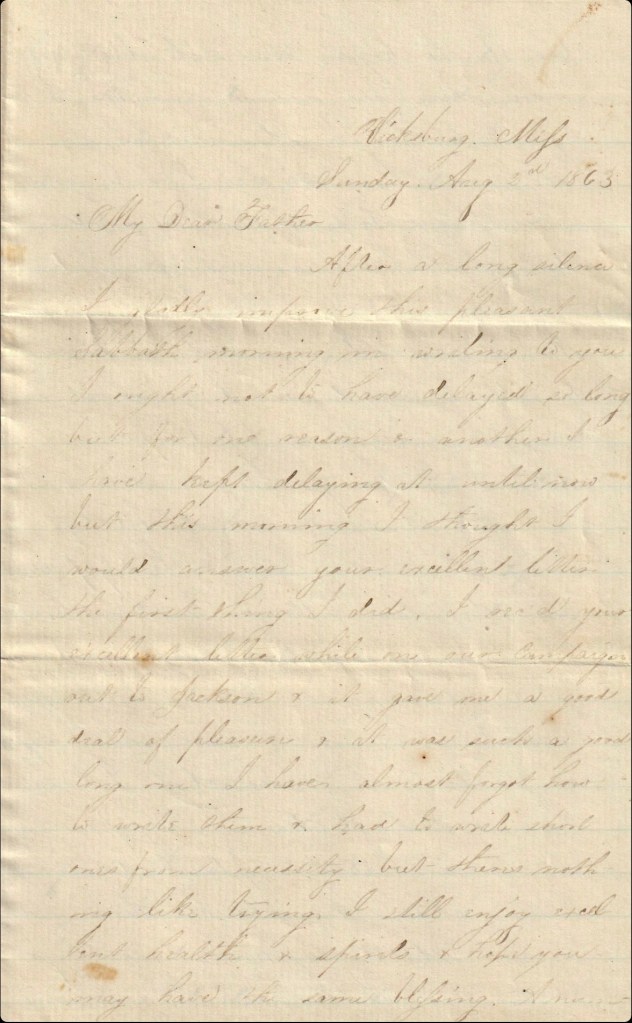 Vicksburg. Miss
Sunday. Aug 2nd 1863
My Dear Father
After a long silence
I improve this pleasant
Sabbath morning in writing to you
I ought not to have delayed so long
but for one reason or another I
have kept delaying it until now
but this morning I thought I
would answer your excellent letter
the first thing I did. I rec'd your
excellent letter while on our campaign
out to Jackson & it gave me a good
deal of pleasure & it was such a good
long one I have almost forgot how
to write them & had to write short
ones from necessity but theres noth
ing like trying. I still enjoy excel
lent health & spirits & hope you
may have the same blessing. A